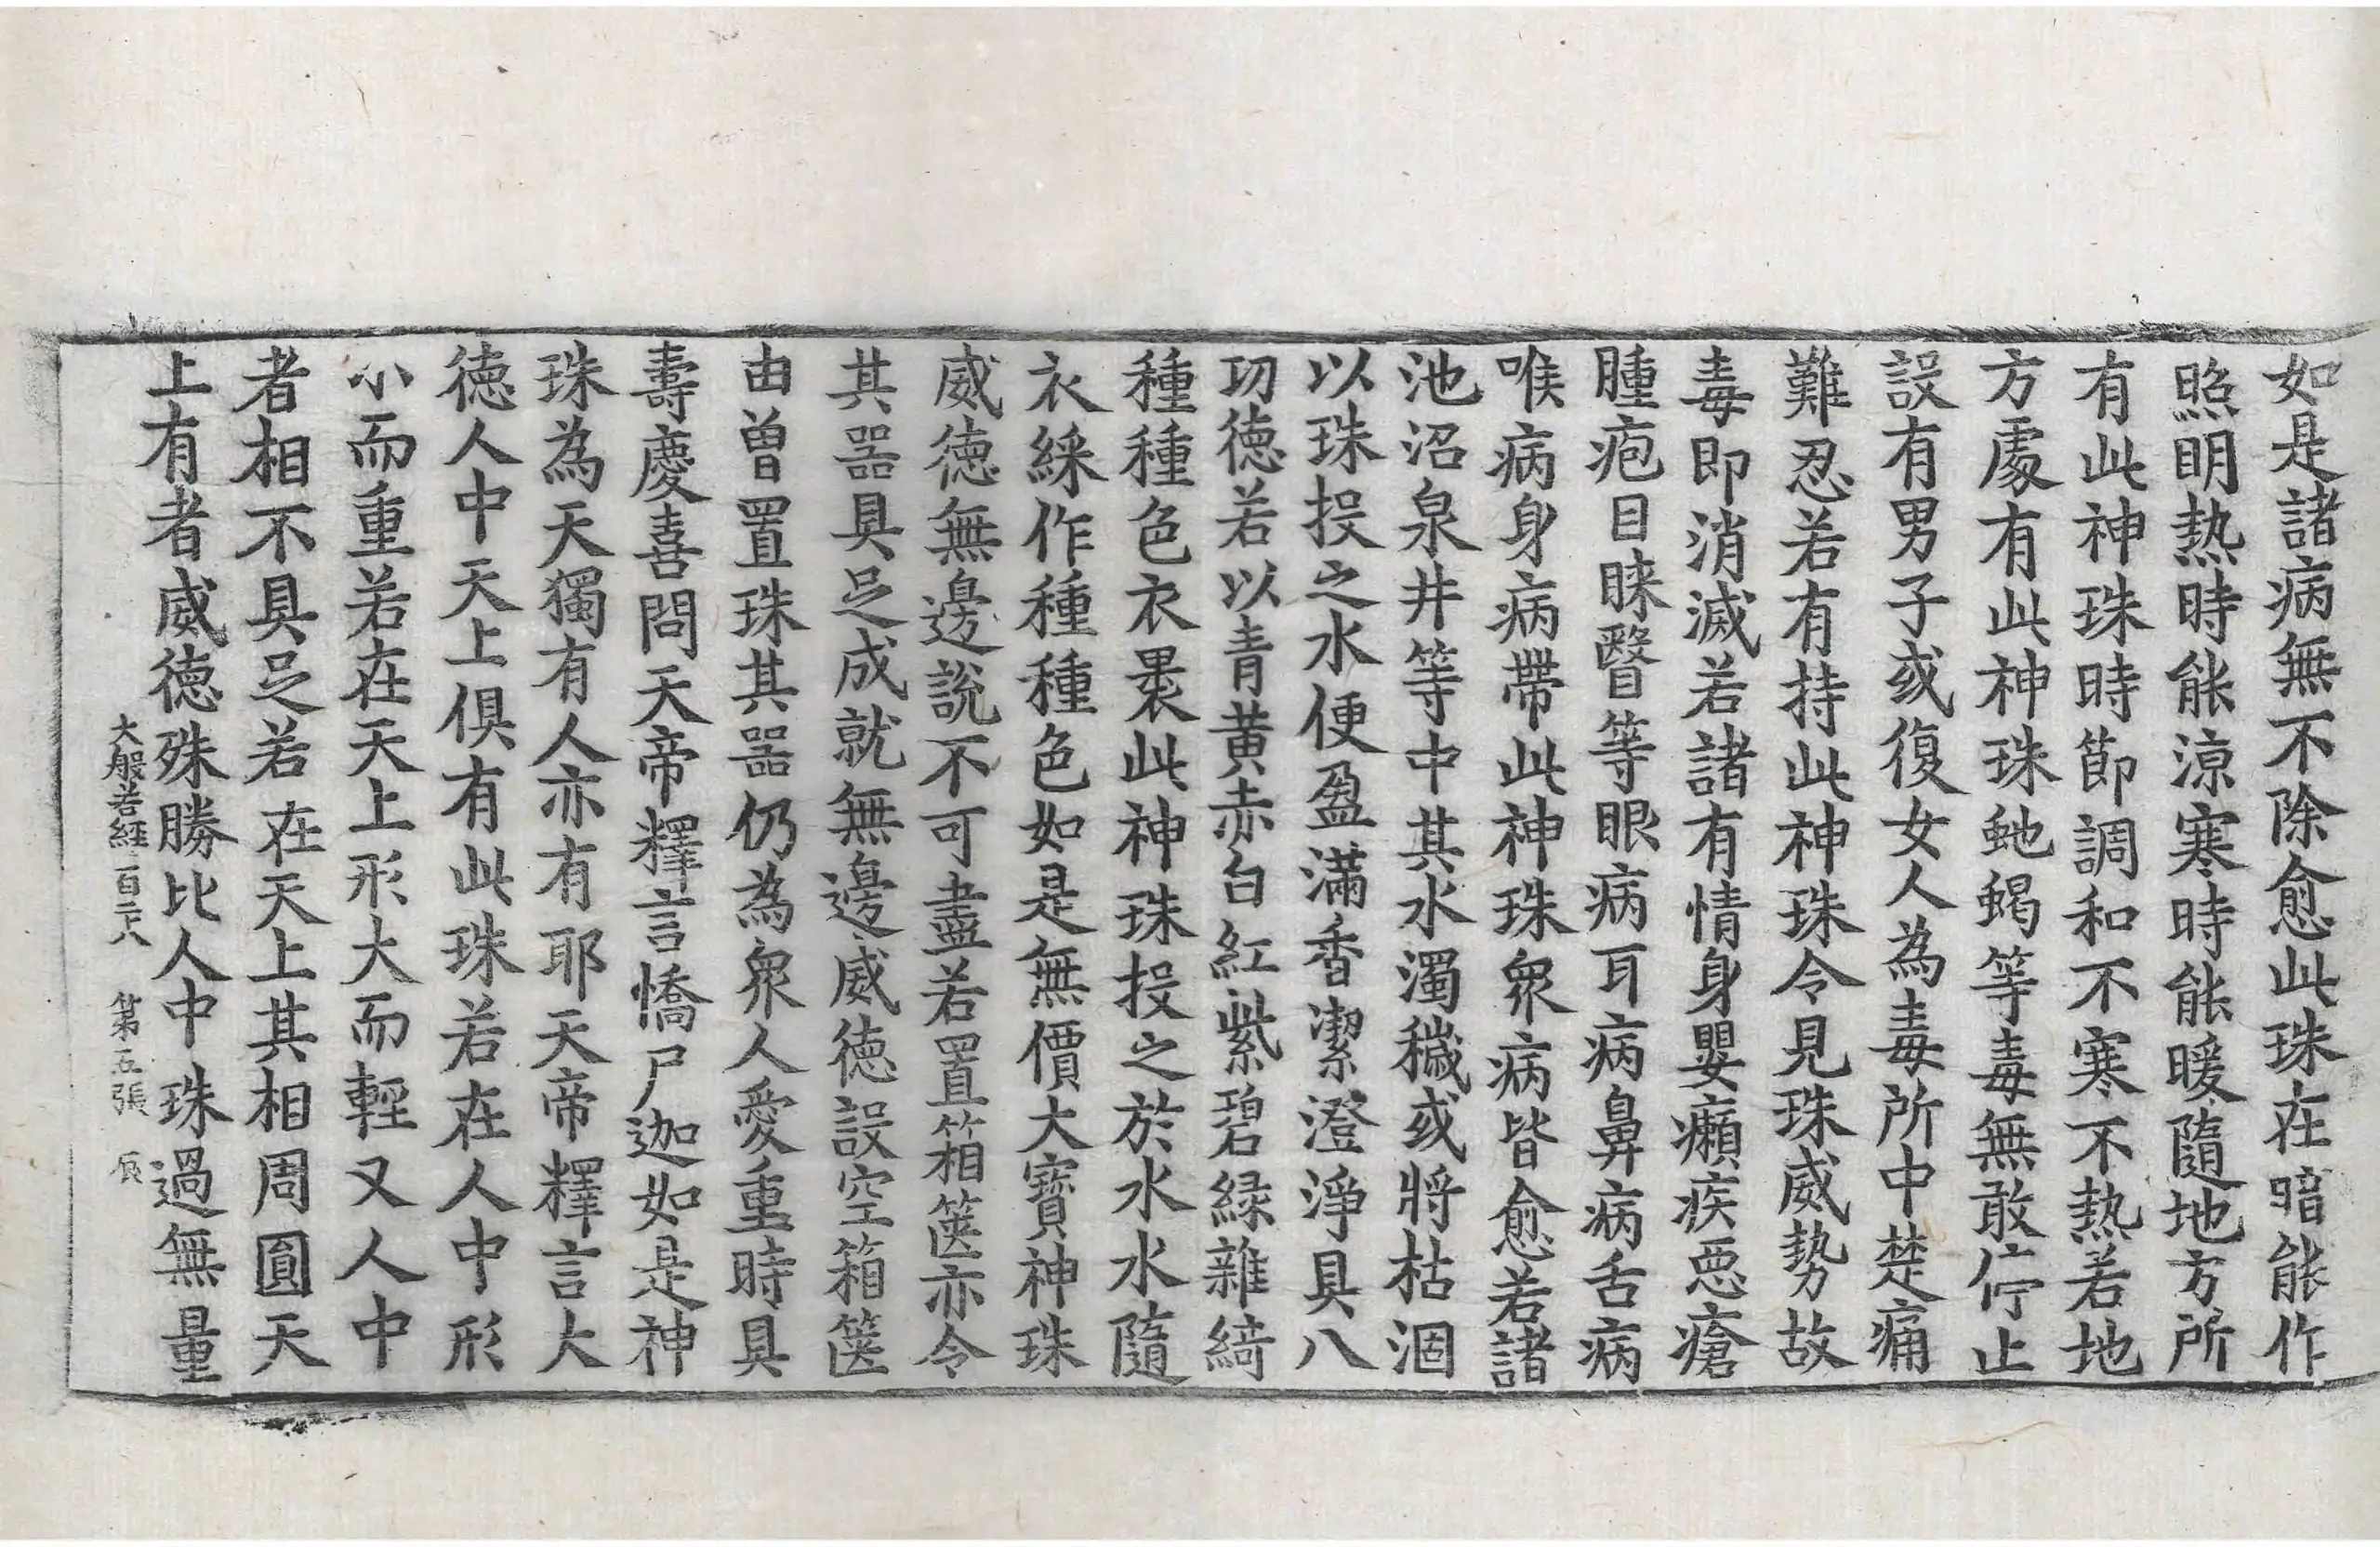 如是諸病無不除愈此珠在暗能作
照明熱時能涼寒時能暖隨地方所
有此神珠時節調和不寒不熱若地
方處有此神珠虵蝎等毒無敢佇止
設有男子或復女人為毒所中楚痛
難忍若有持此神珠令見珠威勢故
毒即消滅若諸有情身嬰癩疾惡瘡
腫疱目眯瞖等眼病耳病鼻病舌病
喉病身病帶此神珠衆病皆愈若諸
池沼泉井等中其水濁穢或將枯涸
以珠投之水便盈滿香潔澄淨具八
功德若以青黄赤白紅紫碧緑雜綺
種種色衣裹此神珠投之於水水隨
衣綵作種種色如是無價大寶神珠
威德無邊說不可盡若置箱篋亦令
其器具足成就無邊威德設空箱篋
由曾置珠其器仍為衆人愛重時具
壽慶喜問天帝釋言憍尸迦如是神
珠為天獨有人亦有耶天帝釋言大
德人中天上俱有此珠若在人中形
小而重若在天上形大而輕又人中
者相不具足若在天上其相周圓天
上有者威德殊勝比人中珠過無量
大般若經一百二十八 第五張 辰